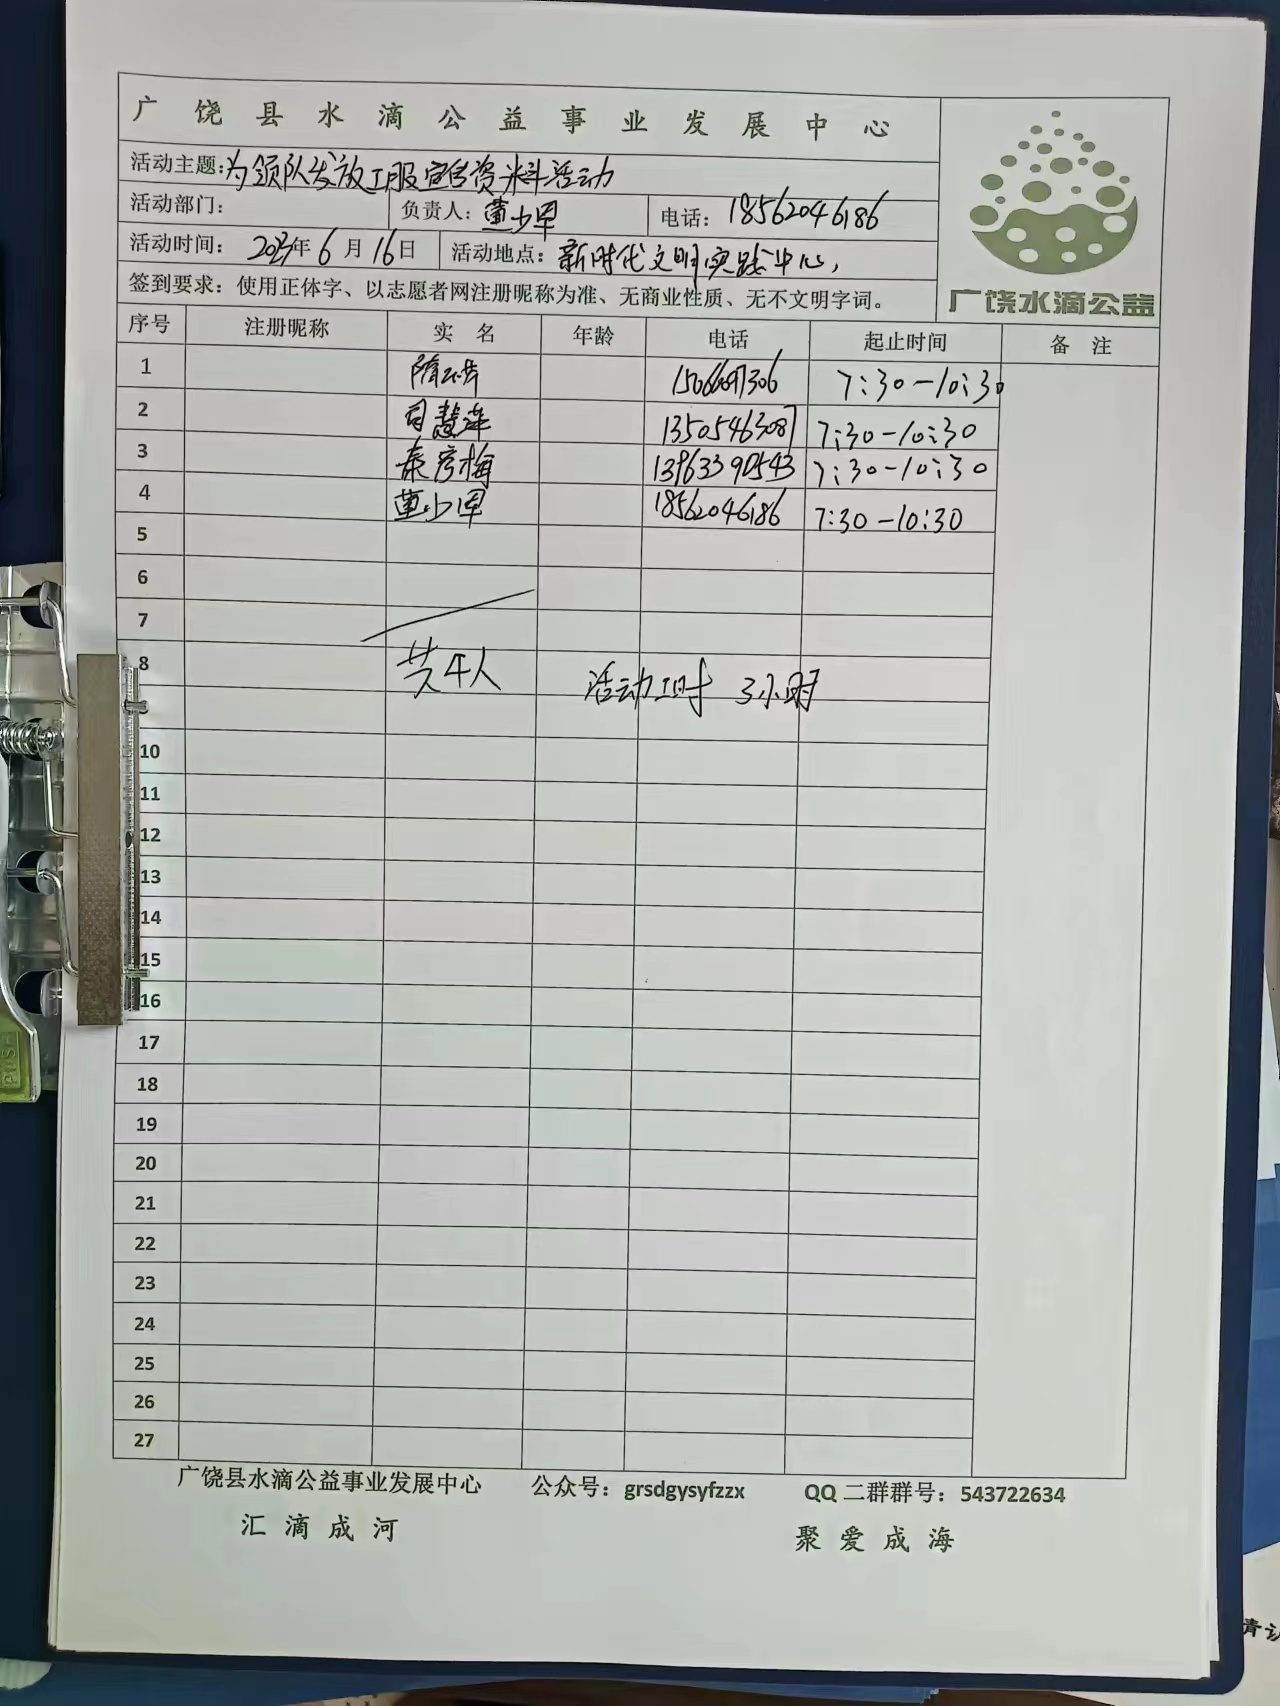 广饶县水滴公益事业发展中心
活动主题:为领队发放工服宣传资料活动
活动部门: 负责人:董少军 电话:18562046186
活动时间: 2023年6月16日 活动地点:新时代文明实践中心,
签到要求:使用正体字、以志愿者网注册昵称为准、无商业性质、无不文明字词。
广饶水滴公益
序号 注册昵称 实名 年龄 电话 起止时间 备注
1 7:30-10:30
2 司慧萍 13505463087 7:30-10:30
3 秦彦梅 13963390543 7:30-10:30
4 董少军 18562046186 7:30-10:30
5
6
7
8 共4人 活动工时 3小时
10
11
12
13
14
15
16
17
18
19
20
21
22
23
24
25
26
27
广饶县水滴公益事业发展中心 公众号:grsdgysyfzzx QQ二群群号:543722634
汇滴成河 聚爱成海